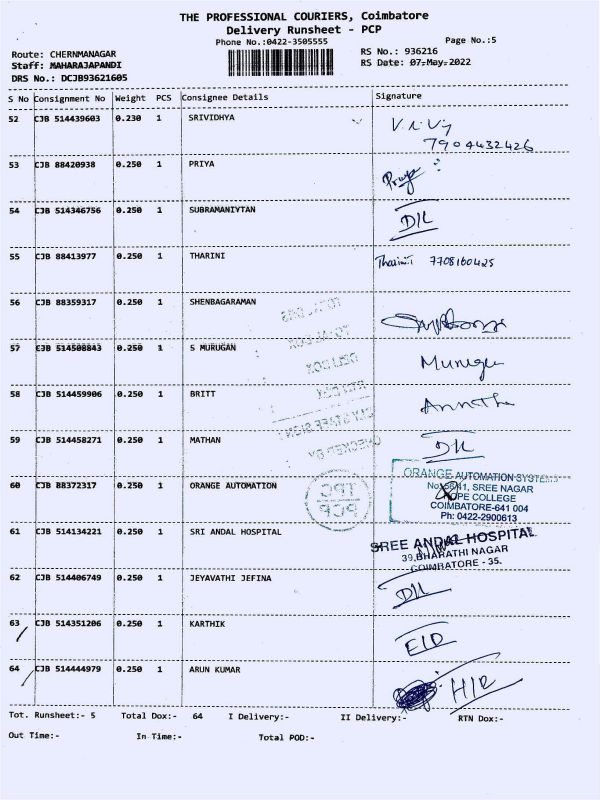 THE PROFESSIONAL COURIERS, Coimbatore
Delivery Runsheet - PCP
Phone No.:0422-3505555
Page No.:5
Route: CHERNMANAGAR
RS No.: 936216
Staff: MAHARAJAPANDI
RS Date: 07-May-2022
DRS No.: DCJB93621605
S No Consignment No Weight PCS Consignee Details Signature
52 CJB 514439603 0.230 1 SRIVIDHYA
7904432426
53 CJB 88420938 0.250 1 PRIYA Priya
54 CJB 514346756 0.250 1 SUBRAMANIYTAN D/L
55 CJB 88413977 0.250 1 THARINI Tharini.T 7708160425
56 CJB 88359317 0.250 1 SHENBAGARAMAN
57 CJB 514508843 0.250 1 S MURUGAN Murugan
58 CJB 514459906 0.250 1 BRITT
59 CJB 514458271 0.250 1 MATHAN D/L
60 CJB 88372317 0.250 1 ORANGE AUTOMATION
ORANGE AUTOMATION SYSTEMS
SREE NAGAR
HOPE COLLEGE
COIMBATORE-641 004
Ph: 0422-2900613
TPC
PCP
61 CJB 514134221 0.250 1 SRI ANDAL HOSPITAL
SREE ANDAL HOSPITAL
39,BHARATHI NAGAR
COIMBATORE - 35.
62 CJB 514406749 0.250 1 JEYAVATHI JEFINA D/L
63 CJB 514351206 0.250 1 KARTHIK
64 CJB 514444979 0.250 1 ARUN KUMAR
Tot. Runsheet:- 5 Total Dox:- 64 I Delivery:- II Delivery:- RTN Dox:-
Out Time:- In Time:- Total POD:-